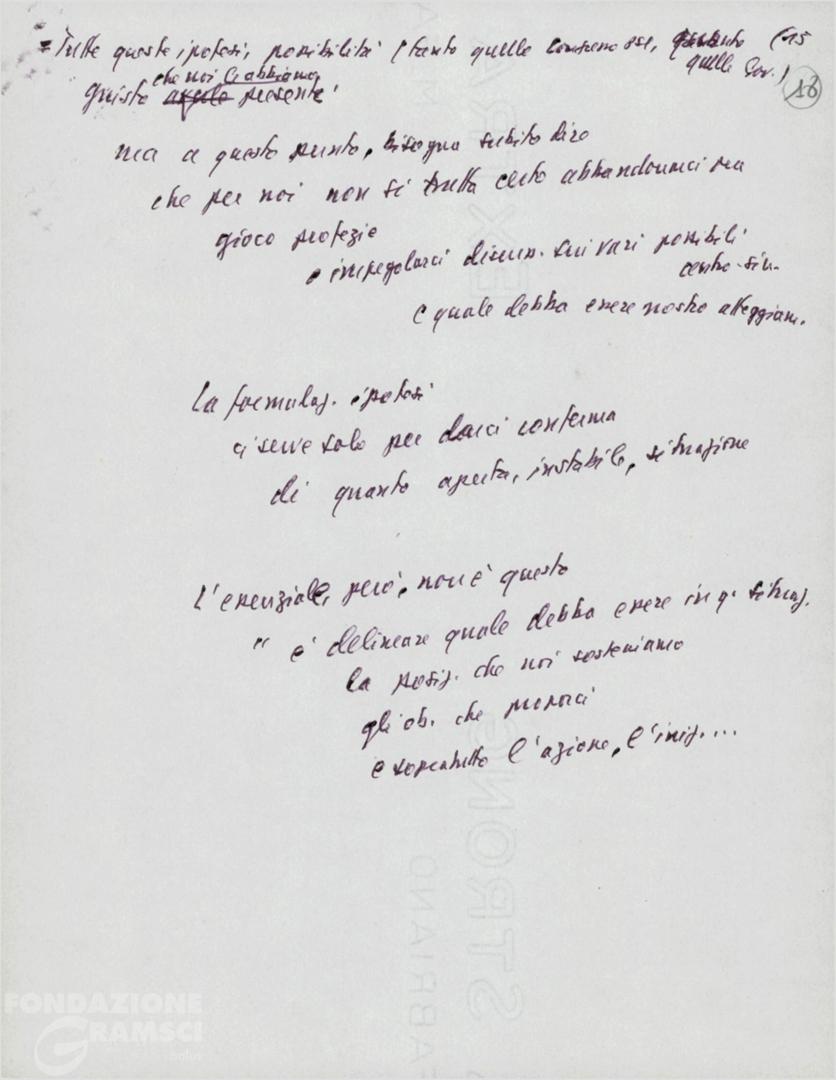 = Tutte queste ipotesi, possibilità (tanto quelle congresso DC, quanto (15
quelle Gov.) 18
che noi le abbiamo
giusto averle presenti
ma a questo punto, bisogna subito dire
che per noi non si tratta certo abbandonarci ora
gioco profezie
o impegolarci discuss. sui vari possibili
centro-sin.
e quale debba essere nostro atteggiam.
La formulaz. ipotesi
ci serve solo per darci conferma
di quanto aperta, instabile, situazione
L'essenziale, però, non è questo
" è delineare quale debba essere in q. situaz.
la posiz. che noi sosteniamo
gli ob. che proporci
e soprattutto l'azione, l'iniz....
EXTRA
STRONG
FABRIANO
FONDAZIONE
GRAMSCI
onlus